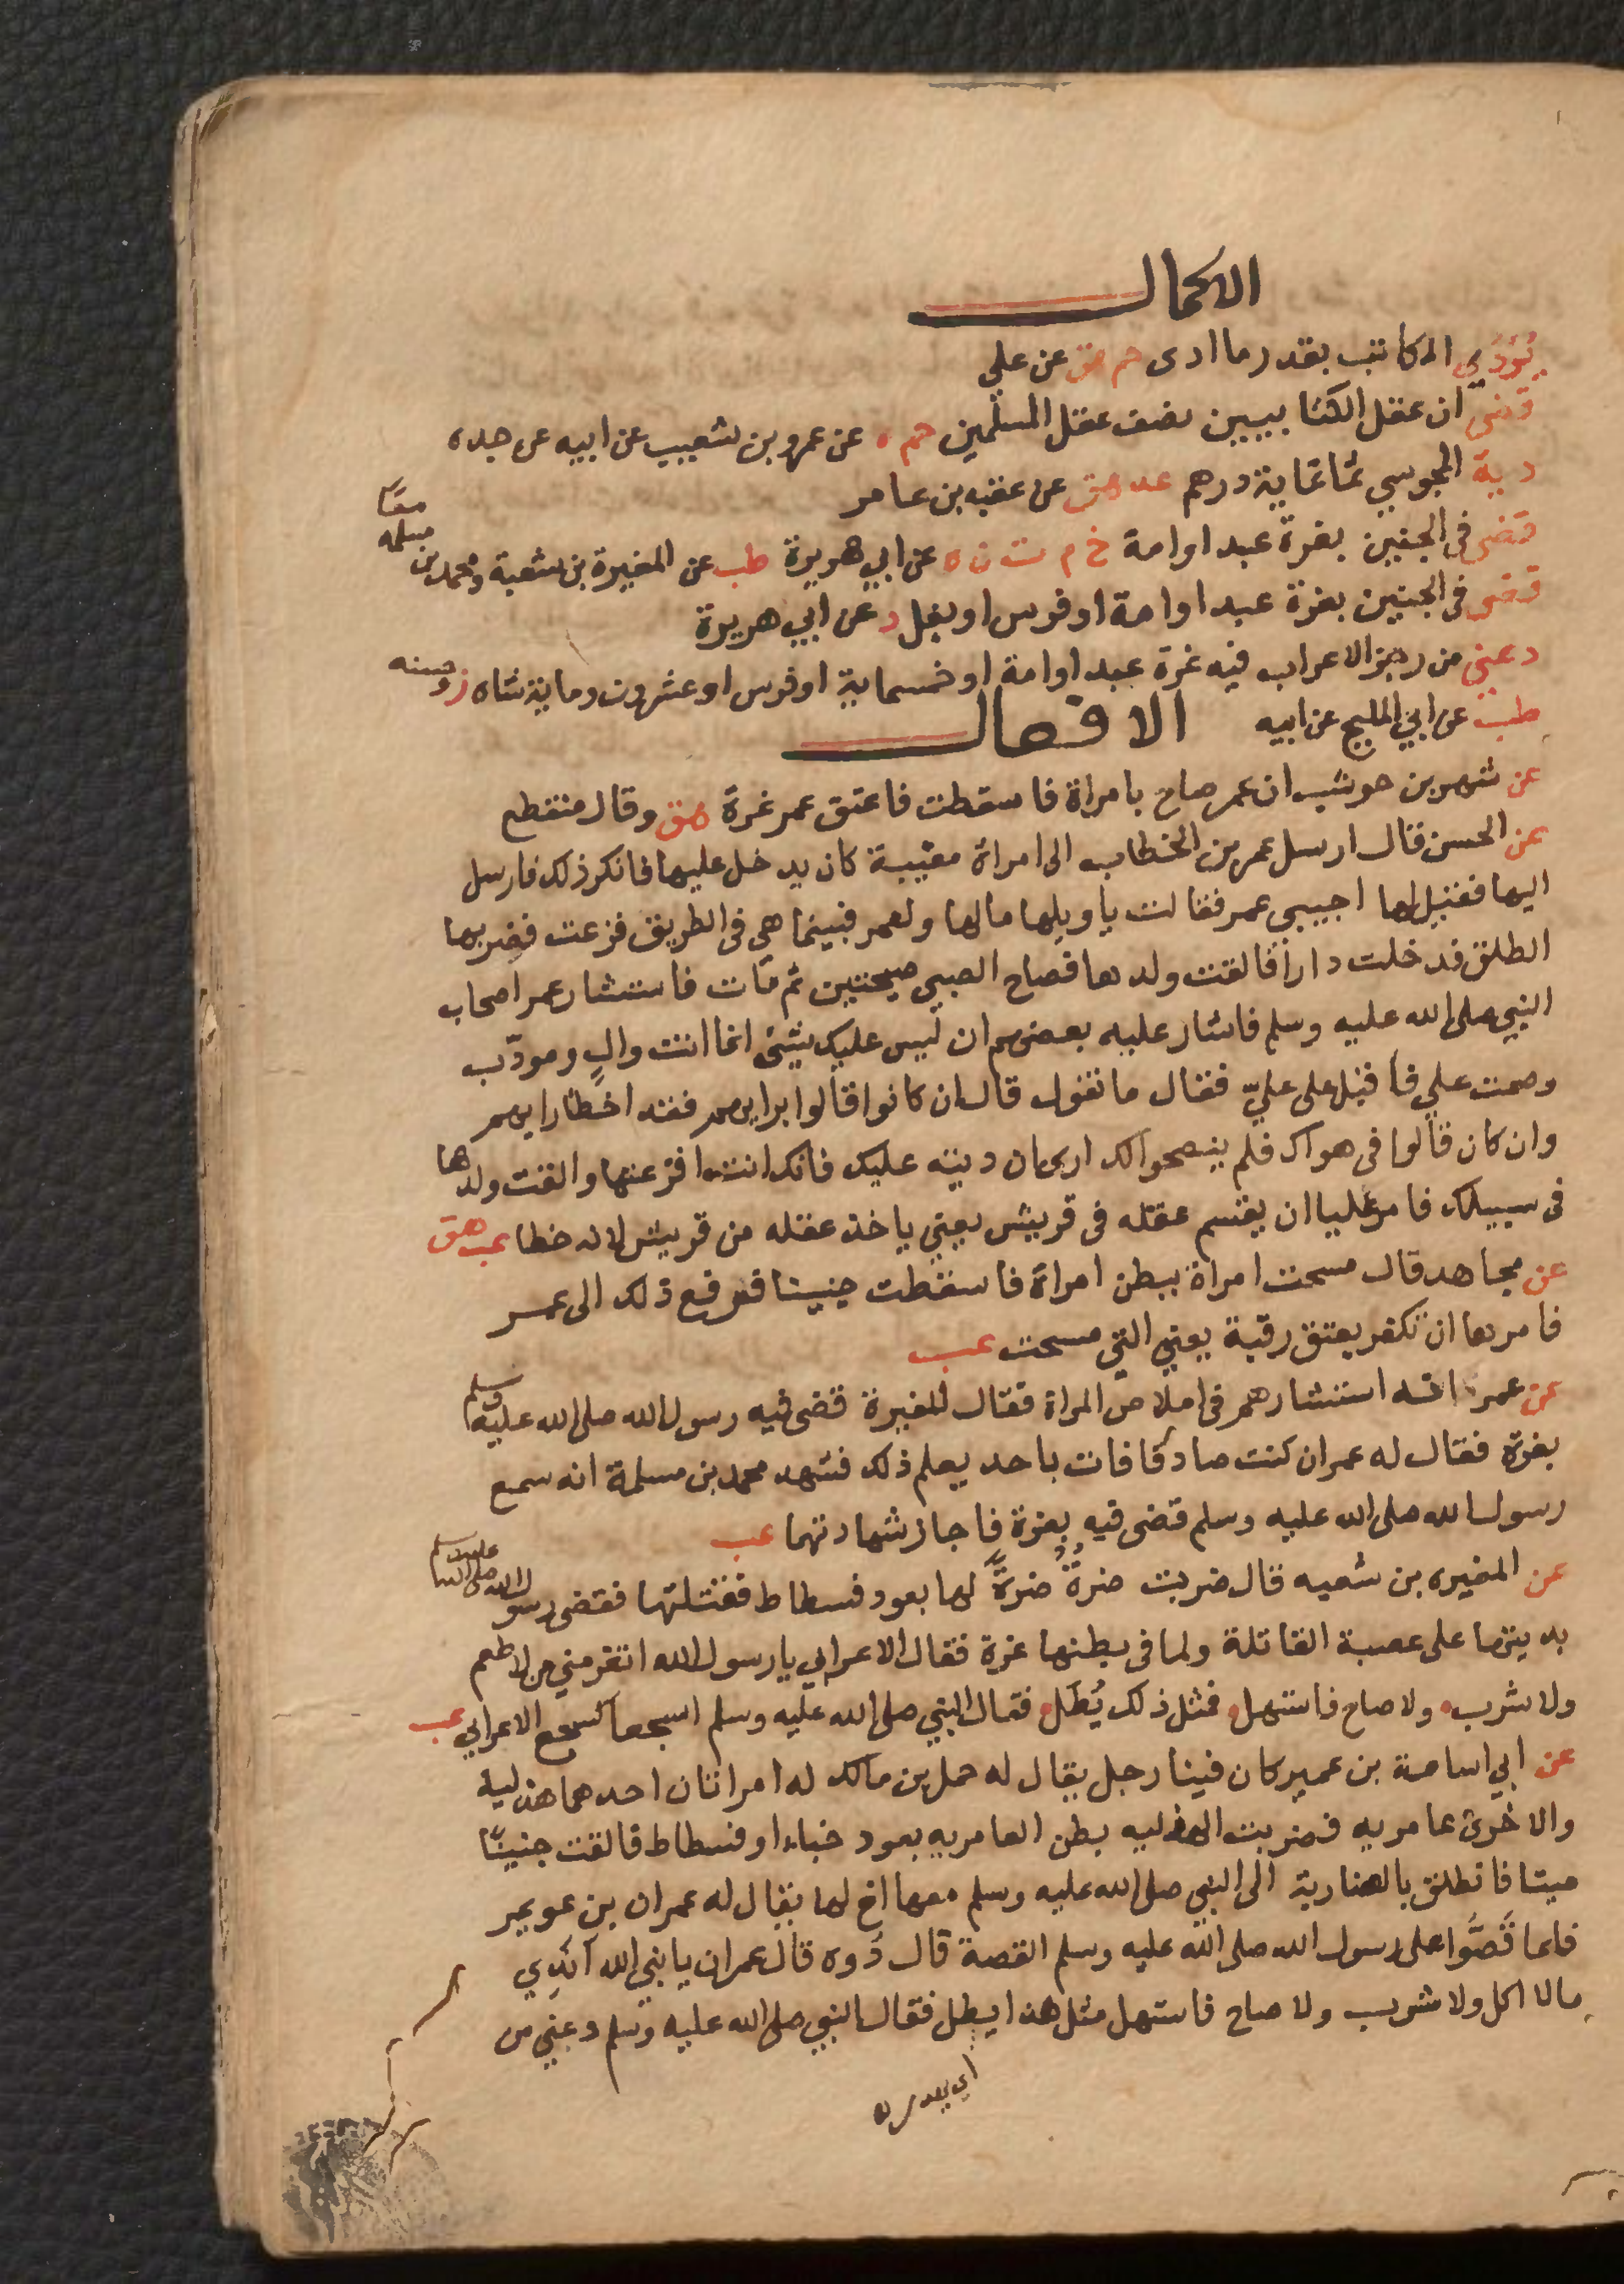 الاكمال
يُؤدَي المكاتب بقدر ما ادى حم هق عن علي
قضى ان عقل الكتابيين نصف عقل المسلمين حم ه عن عمرو بن شعيب عن ابيه عن جده
دية المجوسي ثمانماية درهم عد هق عن عقبه بن عامر
قضى في الجنين بغرة عبد او امة خ م ت ن ه عن ابي هريرة طب عن المغيرة بن شعبة ومحمد بن مسلمه معًا
قضى في الجنين بغرة عبد او امة او فرس او بغل د عن ابي هريرة
دعني من رجز الاعراب فيه غرة عبد او امة او خمسماية او فرس او عشرون وماية شاه
طب عن ابي المليح عن ابيه الافعال
عن شهر بن حوشب ان عمر صاح بامراة فاسقطت فاعتق عمر غرة هق وقال منقطع
عن الحسن قال ارسل عمر بن الخطاب الى امراة مغيبة كان يدخل عليها فانكر ذلك فارسل
اليها فقيل لها اجيبي عمر فقالت يا ويلها ما لها ولعمر فبينما هي في الطريق فزعت فضربها
الطلق فدخلت دارا فالقت ولدها فصاح الصبي صيحتين ثم مات فاستشار عمر اصحاب
النبي صلى الله عليه وسلم فاشار عليه بعضهم ان ليس عليك شيئ انما انت والٍ ومودّب
وصمت علي فاقبل على عليّ فقال ما تقول قال ان كانوا قالوا برايهم فقد اخطا رايهم
وان كان قالوا في هواك فلم ينصحوا لك ارى ان ديته عليك فانك انت افزعتها والقت ولدها
في سبيلك فامر عليا ان يقسم عقله في قريش يعني ياخذ عقله من قريش لانه خطا عب هق
عن مجاهد قال مسحت امراة ببطن امراة فاسقطت جنينا فرفع ذلك الى عمر
فامرها ان تكفر بعتق رقبة يعني التي مسحت عب
عن عمر انه استشارهم في املاص المراة فقال المغيرة قضى فيه رسول الله صلى الله عليه وسلم
بغرة فقال له عمر ان كنت صادقا فات باحد يعلم ذلك فشهد محمد بن مسلمة انه سمع
رسول الله صلى الله عليه وسلم قضى فيه بغرة فاجاز شهادتهما عب
عن المغيره بن شعبه قال ضربت ضرةٌ ضرةً لها بعود فسطاط فقتلتها فقضى رسول الله صلى الله عليه وسلم
بديتها على عصبة القاتلة ولما في بطنها غرة فقال الاعرابي يا رسول الله اتغرمني من لا طعم
ولا شرب ولا صاح فاستهل فمثل ذلك يُطَل فقال النبي صلى الله عليه وسلم اسجعا كسجع الاعرابي عب
عن ابي اسامة بن عمير كان فينا رجل يقال له حمل بن مالك له امراتان احدهما هذلية
والاخرى عامريه فضربت الهذليه بطن العامريه بعود خباء او فسطاط فالقت جنينًا
ميتا فانطلق بالضاربة الى النبي صلى الله عليه وسلم معها اخ لها يقال له عمران بن عويمر
فلما قَصُّوا على رسول الله صلى الله عليه وسلم القصة قال دُوه قال عمران يا نبي الله اَنَدِي
ما لا اكل ولا شرب ولا صاح فاستهل مثل هذا يطل فقال النبي صلى الله عليه وسلم دعني من